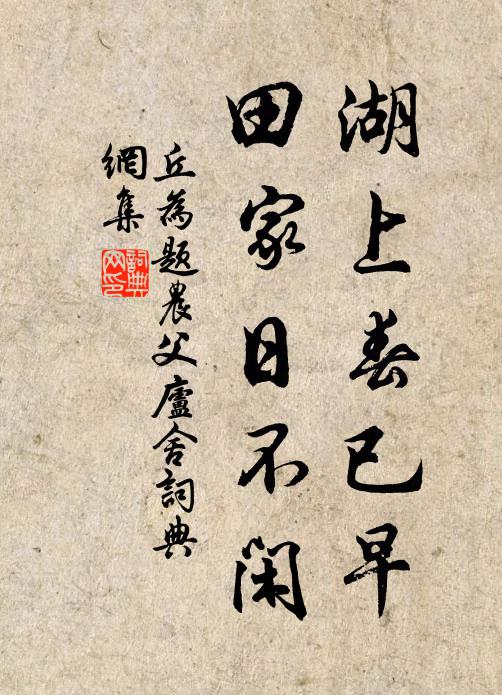 湖上春已早
田家日不閑
丘為題農父廬舍詞典
網集
詞典網印